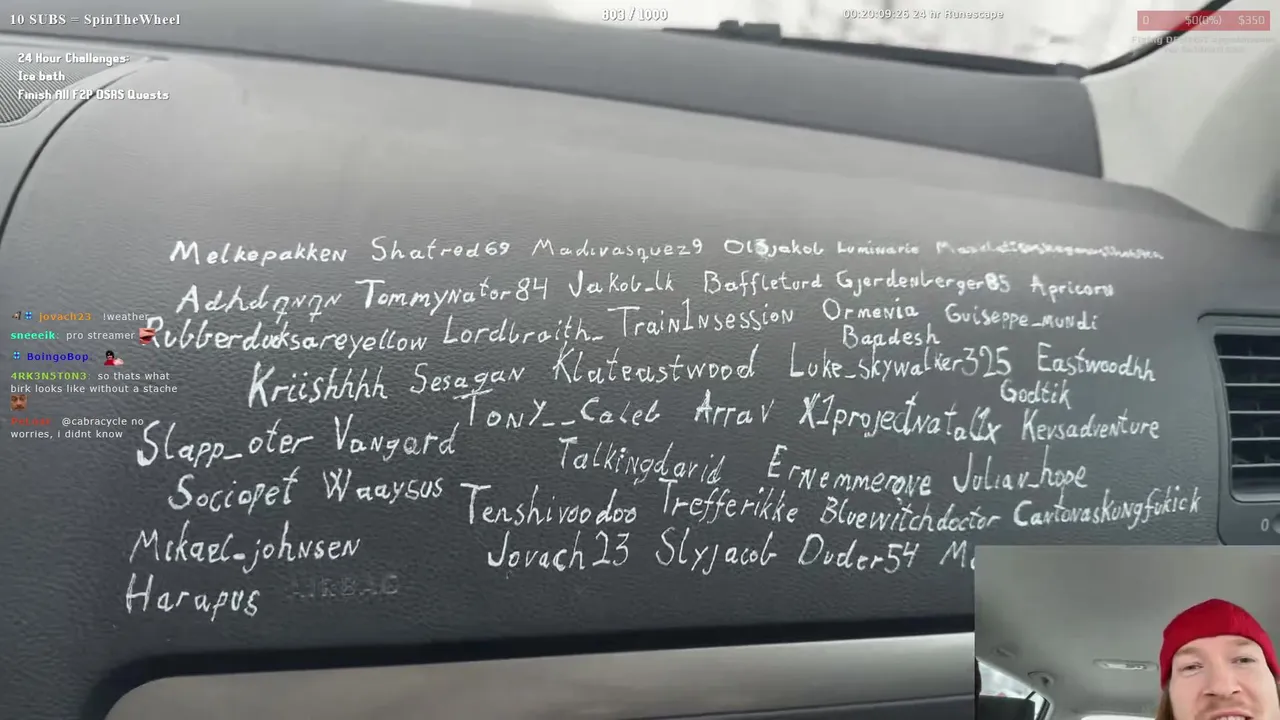 10 SUBS = SpinTheWheel
803 / 1000
00:20:09:26 24 hr Runescape
0 $0(0%) $350
24 Hour Challenges:
Ice bath
Finish All F2P OSRS Quests
Melkepakken Shatred69 Madivasquez9 Ol3jakob Luminarie
Adhdqnqn Tommynator84 Jakob_lk Baffleturd Gjerdenberger85 Apricorn
Rubberducksareyellow Lordbraith_ Train1nsession Ormenia Guiseppe_mundi
Bagdesh
Kriishhhh Sesagan Klateastwood Luke_skywalker325 Eastwoodhh
Godtik
Slapp_oter Vangard Tony__Caleb Arrav X1projectnatal1x Kevsadventure
Sociopet Waaysus Talkingdavid Ernemmerove Julian_hope
Tenshivoodoo Trefferikke Bluewitchdoctor Cantonaskungfukick
Mikael_johnsen Jovach23 Slyjacob Duder54
Harapus AIRBAG
jovach23 !weather
sneeeik: pro streamer
BoingoBop
4RK3N5T0N3: so thats what
birk looks like without a stache
@cabracycle no
worries, i didnt know
0